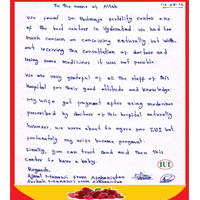 In the name of Allah
We used Dr. Padmaja fertility center one
of the best center in Hyderabad. We had too
much concern on conceiving naturally but with
out receiving the consultation of doctors and
using some medicines it was not possible.
We are very grateful of all the staff of this
hospital for their good attitude and knowledge
My wife got pregnant after using medicines
prescribed by doctors of this hospital naturally
however, we were about to again for IUI but
fortunately my wife became pregnant.
Finally, you can trust and then this
center to have a baby.
Regards,
Ajmal Mansoori from Afghanistan
IUI